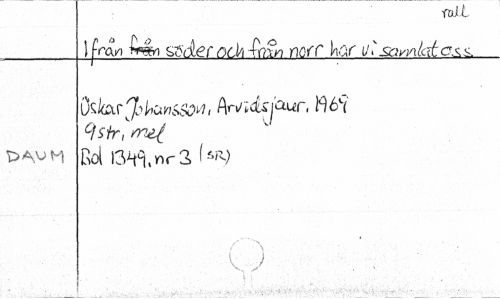 rall
Ifrån från söder och från norr har vi samlat oss
Oskar Johansson, Arvidsjaur, 1969
9 str, mel
DAUM Bd 1349, nr 3 (SR)